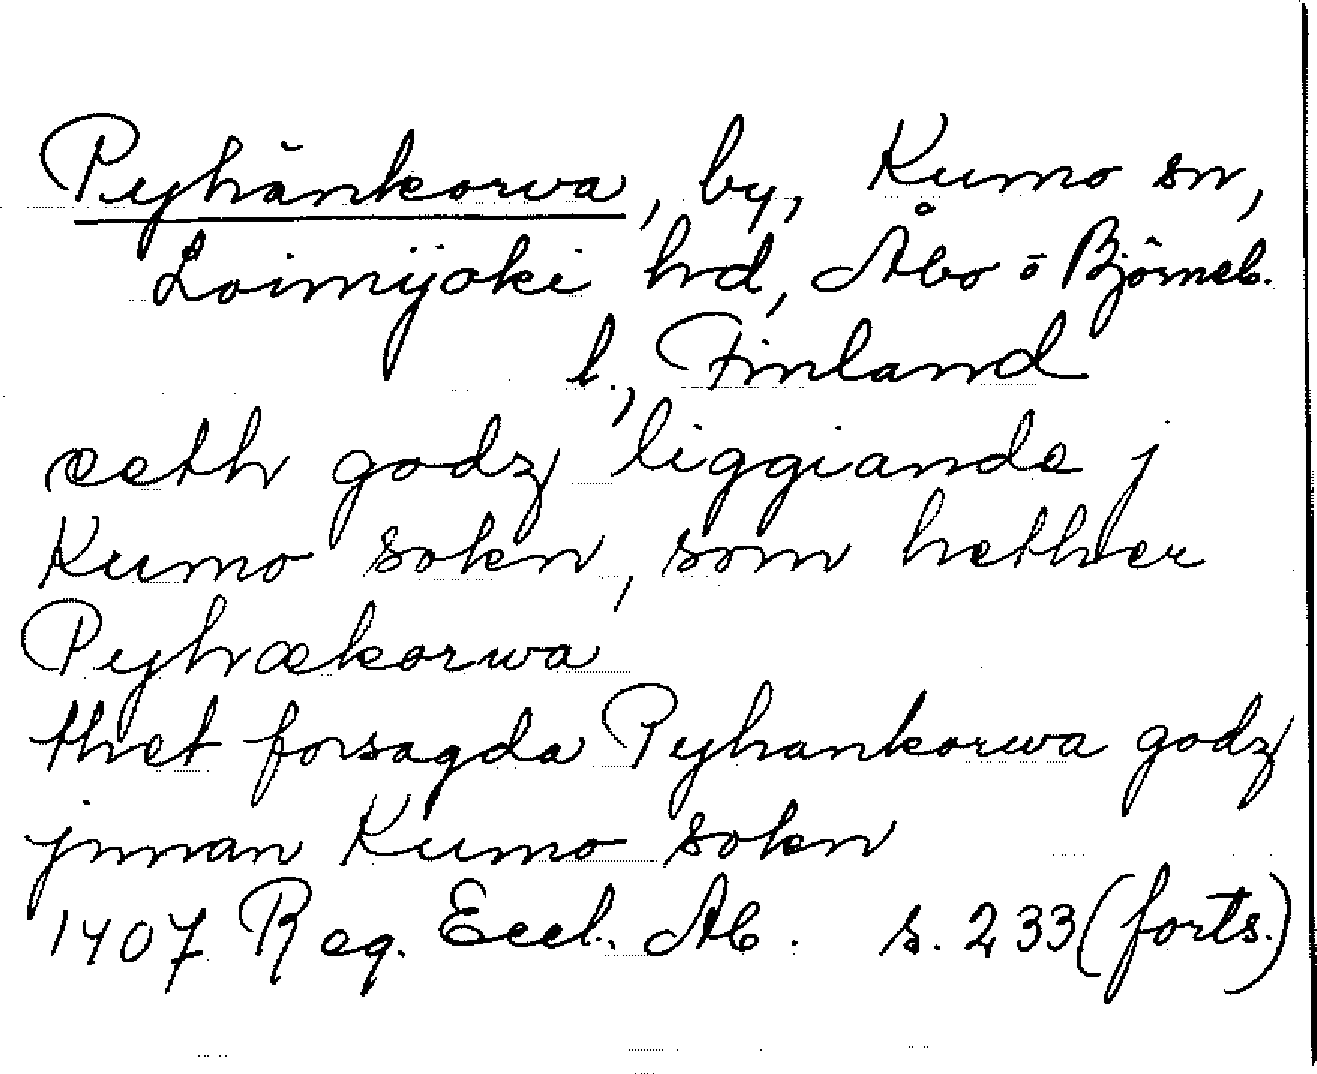 Pyhänkorva, by, Kumo sn,
Loimijoki hd, Åbo o Björneb.
l., Finland
æeth godz liggiande j
Kumo sokn, som hether
Pyhækorwa
thet forsagda Pyhankorwa godz
jnnan Kumo sokn
1407 Reg. Eccl. Ab. s. 233 (forts.)